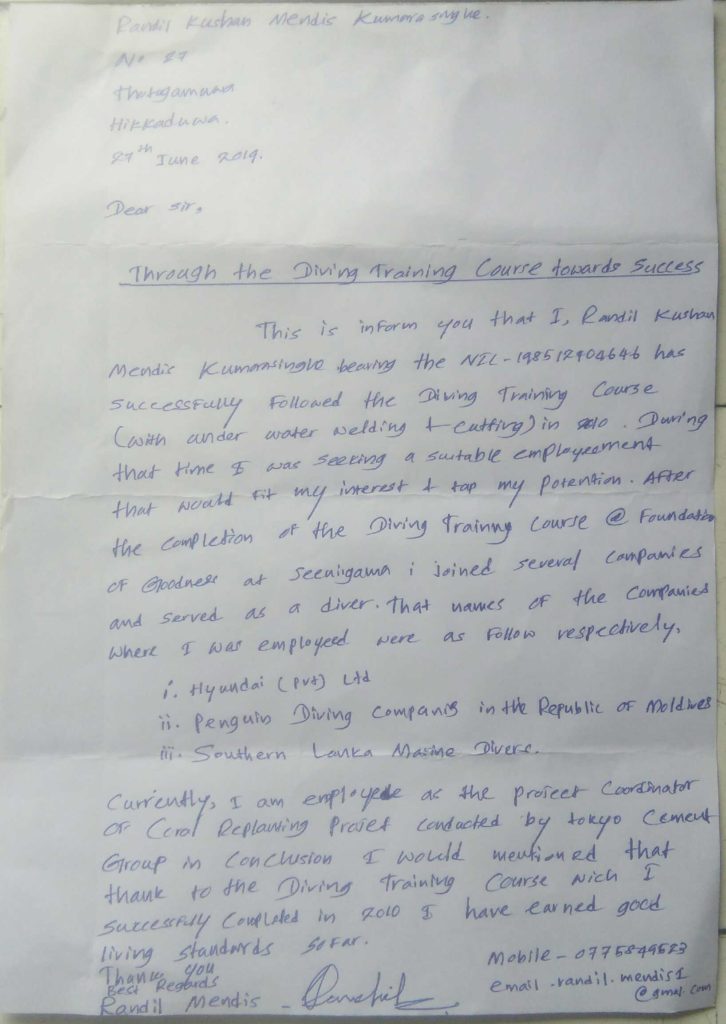 Randil Kushan Mendis Kumarasinghe.
No 27
Thotagamuwa
Hikkaduwa.
27th June 2019.
Dear sir,
Through the Diving Training Course towards Success
This is inform you that I, Randil Kushan
Mendis Kumarasinghe bearing the NIC-198512904646 has
successfully followed the Diving Training Course
(with under water welding & cutting) in 2010. During
that time I was seeking a suitable employeement
that would fit my interest & tap my potention. After
the completion of the Diving Training Course @ Foundation
of Goodness at Seenigama i joined several companies
and served as a diver. That names of the companies
where I was employeed were as follow respectively,
i. Hyundai (pvt) Ltd
ii. Penguin Diving Companis in the Republic of Moldives
iii. Southern Lanka Marine Divers.
Currently, I am employed as the project coordinator
of Coral Replanting Projet conducted by tokyo Cement
Group in conclusion I would mentioned that
thank to the Diving Training Course wich I
successfully completed in 2010 I have earned good
living standards so far.
Thank you
Best Regards
Randil Mendis -
Mobile - 0775849523
email .randil.mendis1
@gmal.com